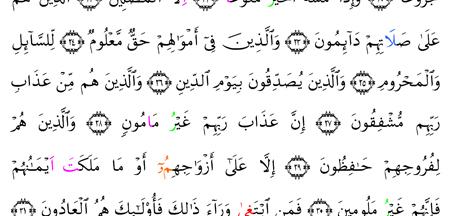 جَزُوعًا ﴿٢٠﴾ وَإِذَا مَسَّهُ ٱلْخَيْرُ مَنُوعًا ﴿٢١﴾ إِلَّا ٱلْمُصَلِّينَ ﴿٢٢﴾ ٱلَّذِينَ هُمْ
عَلَىٰ صَلَاتِهِمْ دَآئِمُونَ ﴿٢٣﴾ وَٱلَّذِينَ فِىٓ أَمْوَٰلِهِمْ حَقٌّ مَّعْلُومٌ ﴿٢٤﴾ لِّلسَّآئِلِ
وَٱلْمَحْرُومِ ﴿٢٥﴾ وَٱلَّذِينَ يُصَدِّقُونَ بِيَوْمِ ٱلدِّينِ ﴿٢٦﴾ وَٱلَّذِينَ هُم مِّنْ عَذَابِ
رَبِّهِم مُّشْفِقُونَ ﴿٢٧﴾ إِنَّ عَذَابَ رَبِّهِمْ غَيْرُ مَأْمُونٍ ﴿٢٨﴾ وَٱلَّذِينَ هُمْ
لِفُرُوجِهِمْ حَـٰفِظُونَ ﴿٢٩﴾ إِلَّا عَلَىٰٓ أَزْوَٰجِهِمُۥٓ أَوْ مَا مَلَكَتَ ٱيْمَـٰنُهُمْ
فَإِنَّهُمْ غَيْرُ مَلُومِينَ ﴿٣٠﴾ فَمَنِ ٱبْتَغَىٰ وَرَآءَ ذَٰلِكَ فَأُو۟لَـٰٓئِكَ هُمُ ٱلْعَادُونَ ﴿٣١﴾